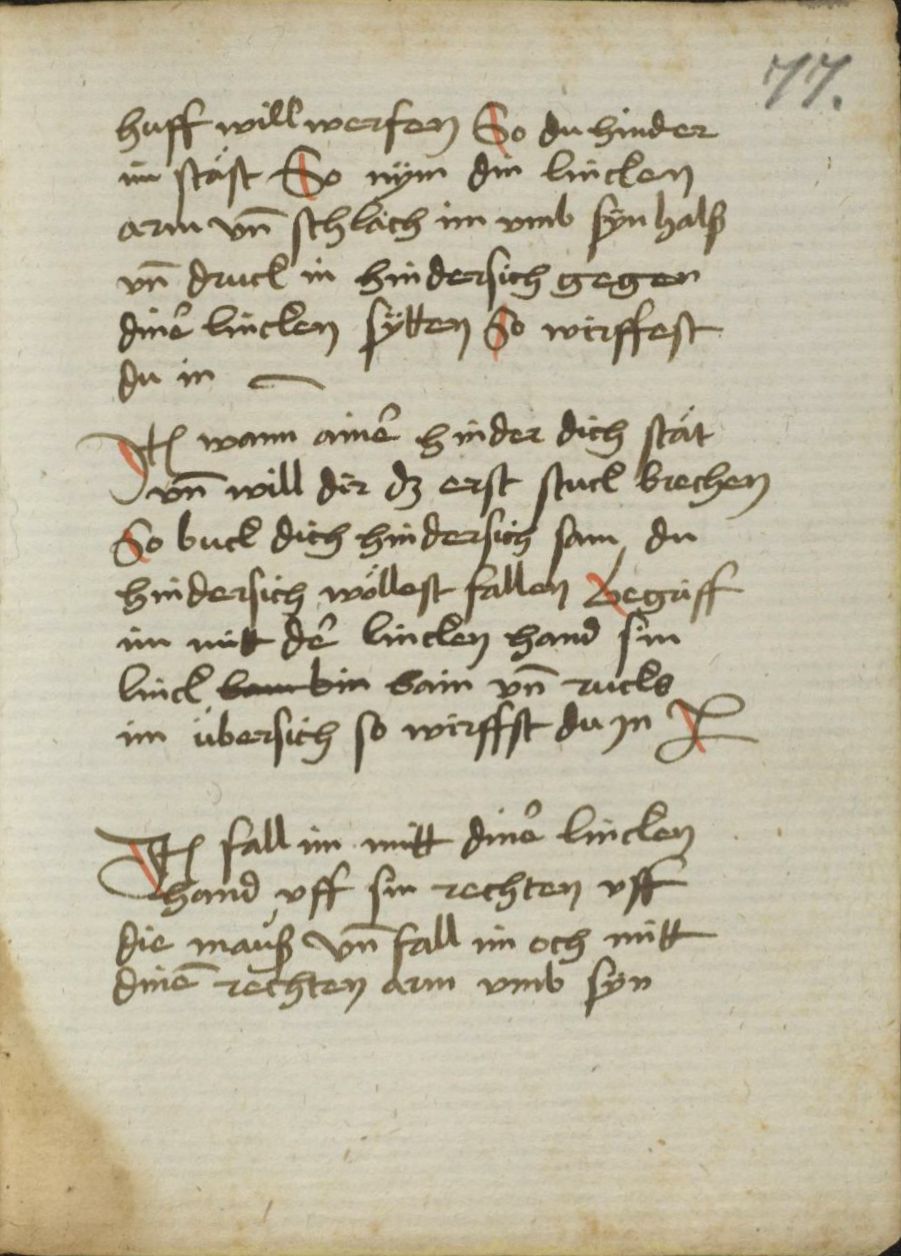 77.
huff will werfen So du hinder
im stäst So nÿm din lincken
arm vn̄ schlach im vmb sÿn halß
vn̄ druck in hindersich gegen
dine͛ lincken sÿtten So wirffest
du in
Itꝫ wann aine͛ hinder dich stät
vn̄ will dir dꝫ erst stuck brechen
So buck dich hindersich sam du
hindersich wöllest fallen Begriff
im mitt de͛ lincken hand sin
linck bain vn̄ rucks
im übersich so wirffst du Jn
Itꝫ fall im mitt dine͛ lincken
hand vff sin rechten vff
die mauß vn̄ fall im och mitt
dinē rechten arm vmb sÿn